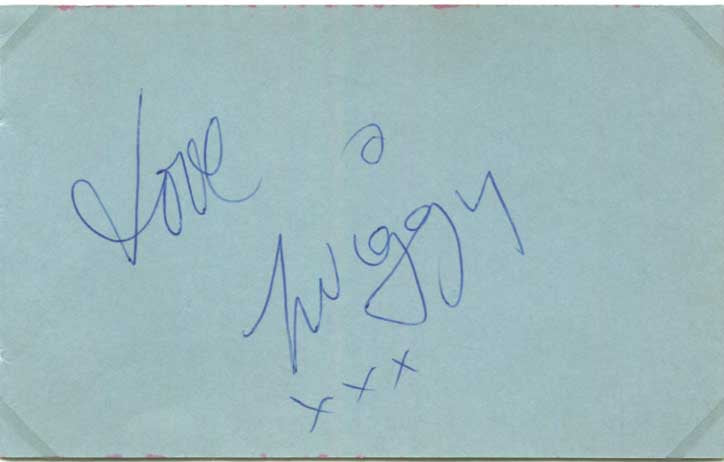 Love
Twiggy
xxx